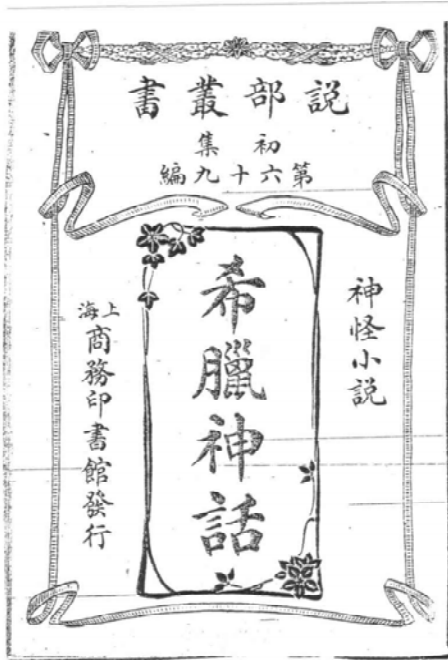 說部叢書
初集
第六十九編
神怪小說
希臘神話
上海
商務印書館發行